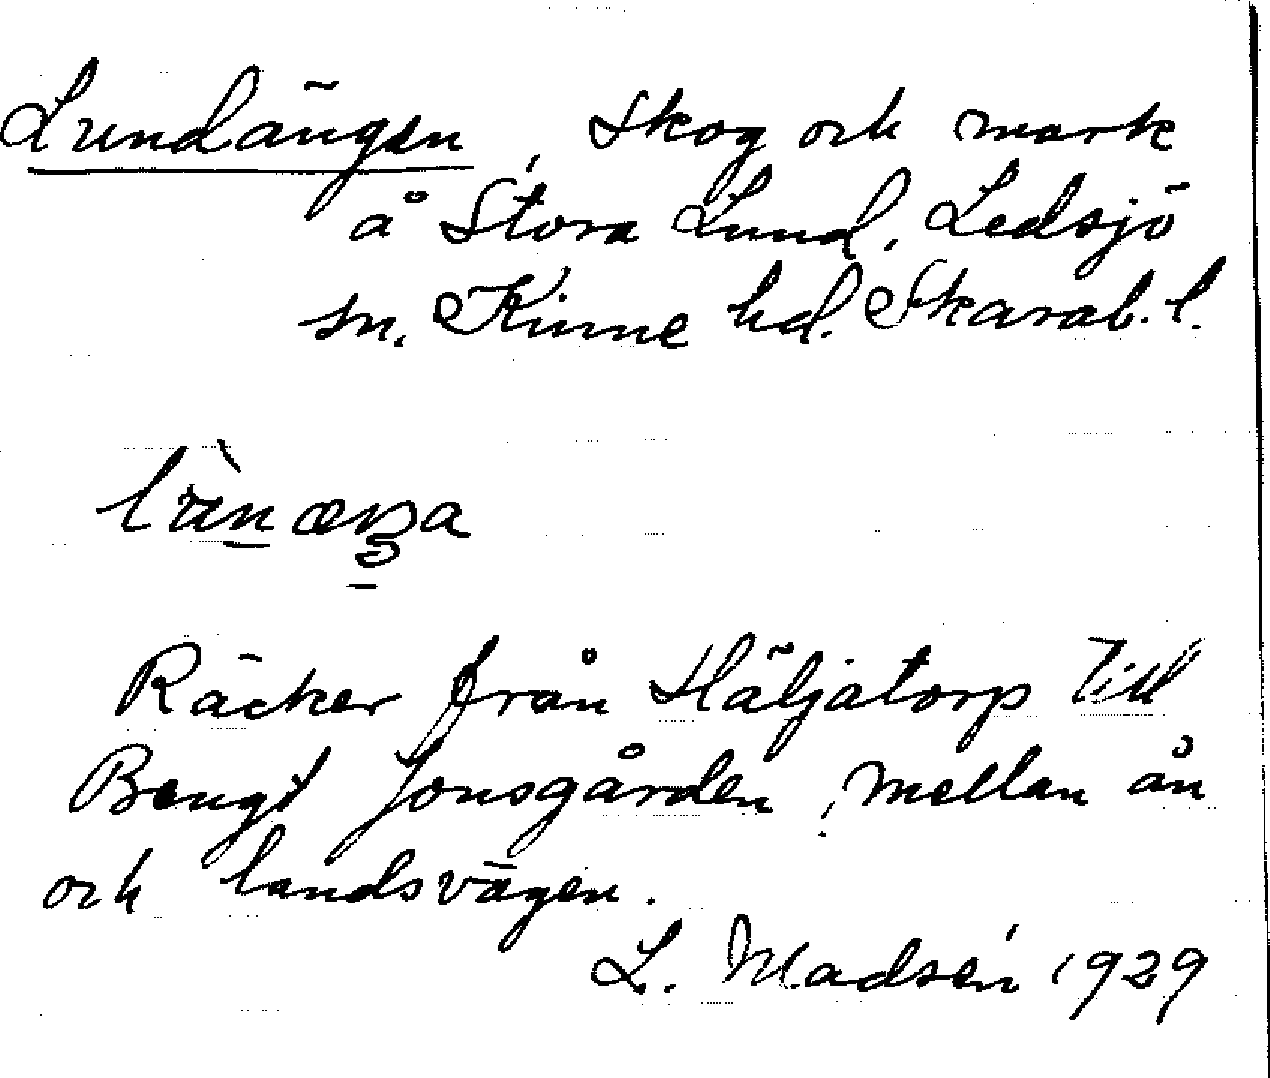 Lundängen, Skog och mark
å Stora Lund, Ledsjö
sn. Kinne hd. Skarab. l.
Räcker från Häljatorp till
Bengt Jonsgården, mellan ån
och landsvägen.
L. Madsén 1929